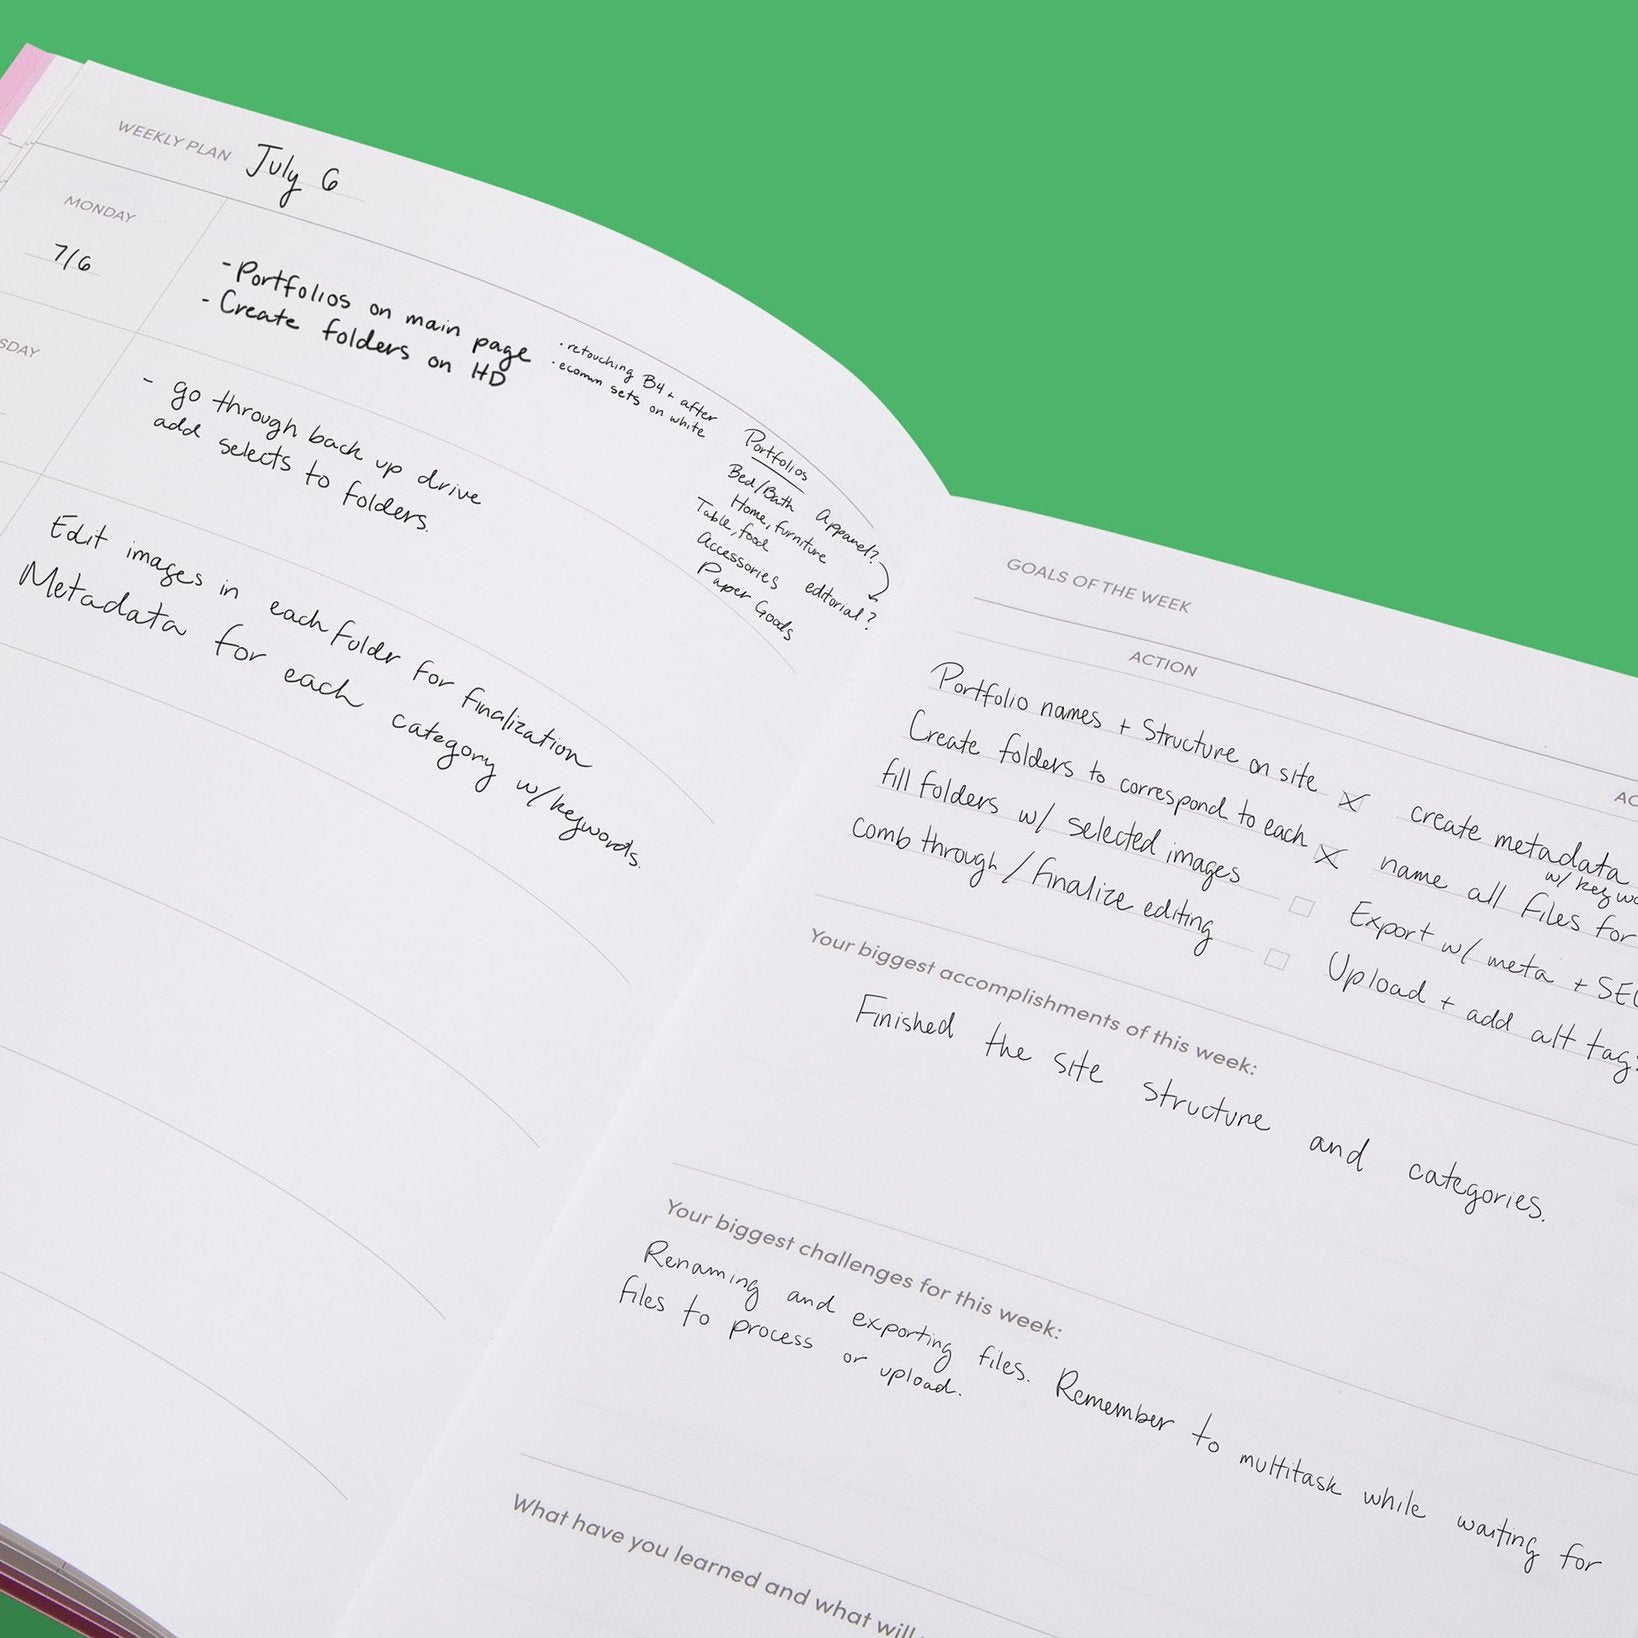 WEEKLY PLAN July 6
MONDAY
7/6
- Portfolios on main page
- Create folders on HD
· retouching B4 + after
· ecomm sets on white
SDAY
- go through back up drive
add selects to folders.
Portfolios
Bed/Bath Apparel?
Home, furniture
Table, food
Accessories editorial?
Paper Goods
Edit images in each folder for finalization
Metadata for each category w/keywords.
GOALS OF THE WEEK
ACTION
AC
Portfolio names + Structure on site
Create folders to correspond to each
fill folders w/ selected images
comb through / finalize editing
create metadata
w/ keywo
name all files for
Export w/ meta + SE
Upload + add alt tag
Your biggest accomplishments of this week:
Finished the site structure and categories.
Your biggest challenges for this week:
Renaming and exporting files. Remember to multitask while waiting for
files to process or upload.
What have you learned and what will